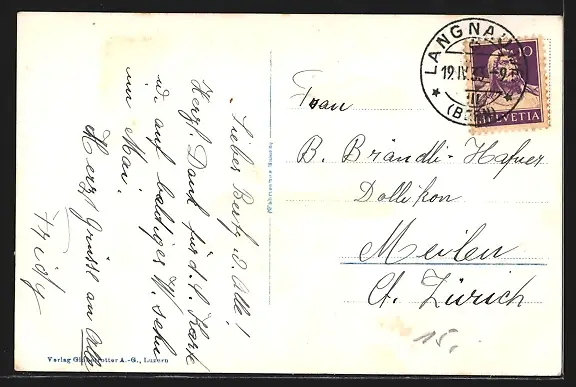 Liebes Berty u. Alle!
Herzl. Dank für d. l. Karte
u. auf baldiges W. sehn
im Mai.
Herzl. Grüsse an Alle
Fridy
Frau
B. Brändli-Hafner
Dollikon
Meilen
Ct. Zürich
15.
LANGNAU
19.IV.
(BERN)
10
HELVETIA
Verlag Globetrotter A.-G., Luzern